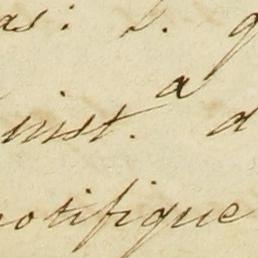 as: S. g
inist.ª d
notifique